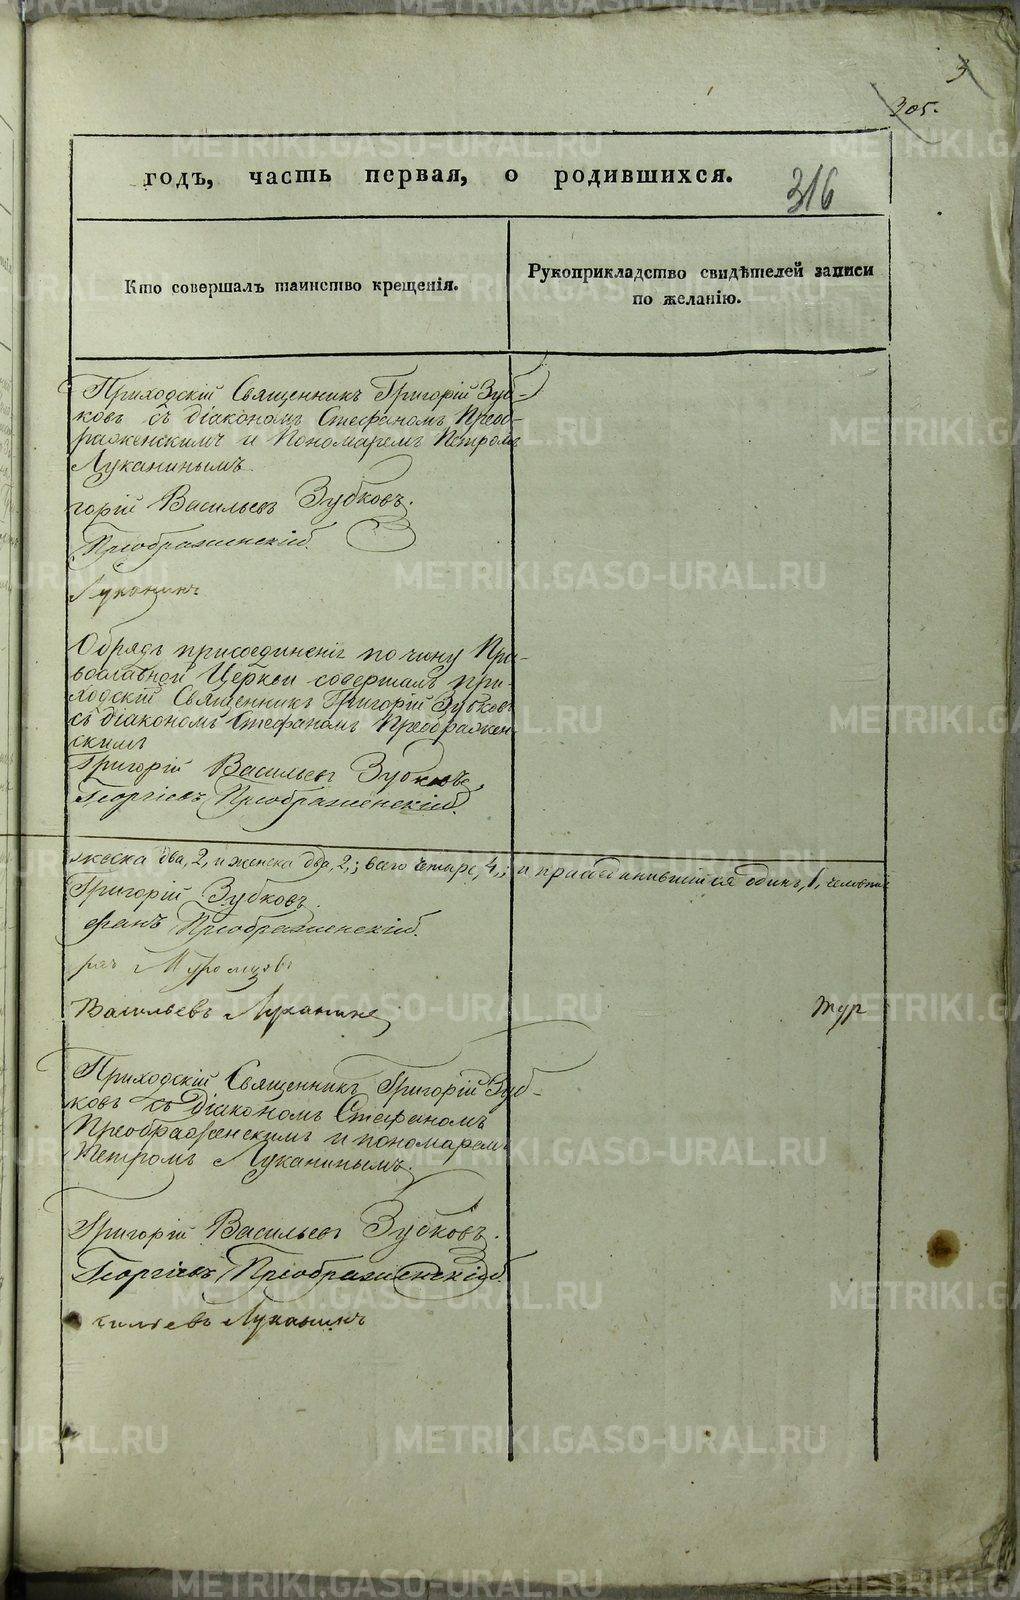 3
305.
годъ, часть первая, о родившихся.
316
Кто совершалъ таинство крещенія.
Рукоприкладство свидѣтелей записи
по желанію.
Приходскій Священникъ Григорій Зуб-
ковъ съ діакономъ Стефаномъ Преоб-
раженскимъ и Пономаремъ Петромъ
Луканинымъ
горій Васильевъ Зубковъ.
Преображенскій.
Луканинъ
Обрядъ присоединенія по чину Пра-
вославной Церкви совершалъ при-
ходскій Священникъ Григорій Зубковъ
съ діакономъ Стефаномъ Преображен
скимъ
Григорій Васильевъ Зубковъ,
Георгіевъ Преображенскій.
жеска два, 2, и женска два, 2,; всего четыре, 4,; и присоединившійся одинъ, 1, человекъ
Григорій Зубковъ.
фанъ Преображенскій.
Васильевъ Луканинъ
Жур
Приходскій Священникъ Григорій Зуб-
ковъ съ Діакономъ Стефаномъ
Преображенскимъ и пономаремъ
Петромъ Луканинымъ.
Григорій Васильевъ Зубковъ.
Георгіевъ Преображенскій.
сильевъ Луканинъ
METRIKI.GASO-URAL.RU